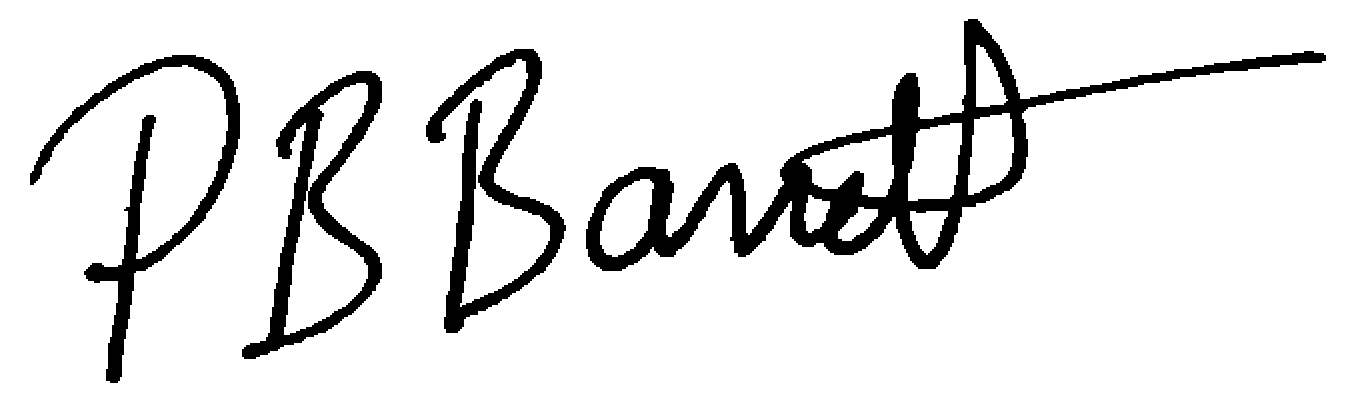 P B Barrett